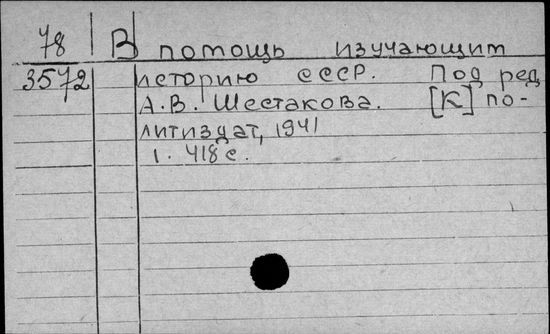 78 В помощь изучающим
3572 историю СССР. Под ред
А.В. Шестакова. [К] по-
литиздат, 1941
1. 418 с.